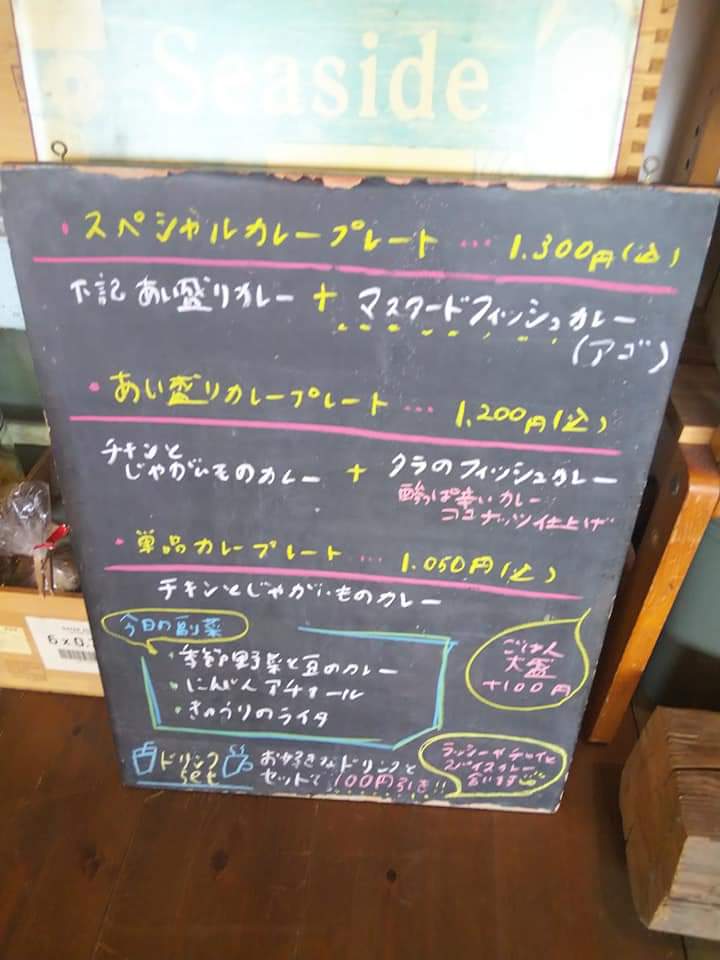 Seaside
・スペシャルカレープレート … 1.300円(込)
下記 あい盛りカレー + マスタードフィッシュカレー
(アゴ)
・あい盛りカレープレート … 1.200円(込)
チキンと
じゃがいものカレー + クラのフィッシュカレー
酸っぱ辛いカレー
ココナッツ仕上げ
・単品カレープレート … 1.050円(込)
チキンとじゃがいものカレー
今日の副菜
・季節野菜と豆のカレー
・にんじんアチャール
・きゅうりのライタ
ごはん
大盛
+100円
ドリンク
set
お好きなドリンクと
セットで 100円引き!!
ラッシーやチャイと
スパイスカレー
合います